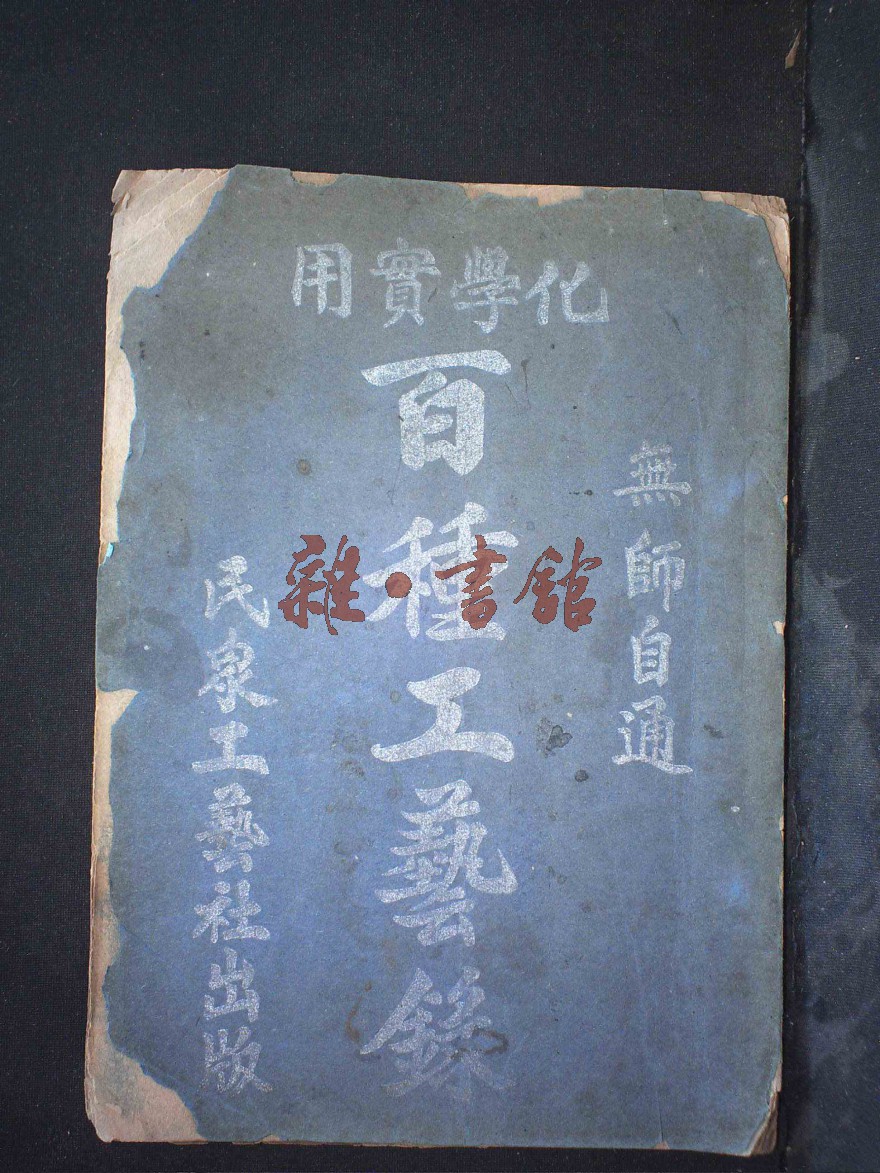 化學實用
無師自通
百種工藝錄
民衆工藝社出版
雜·書館